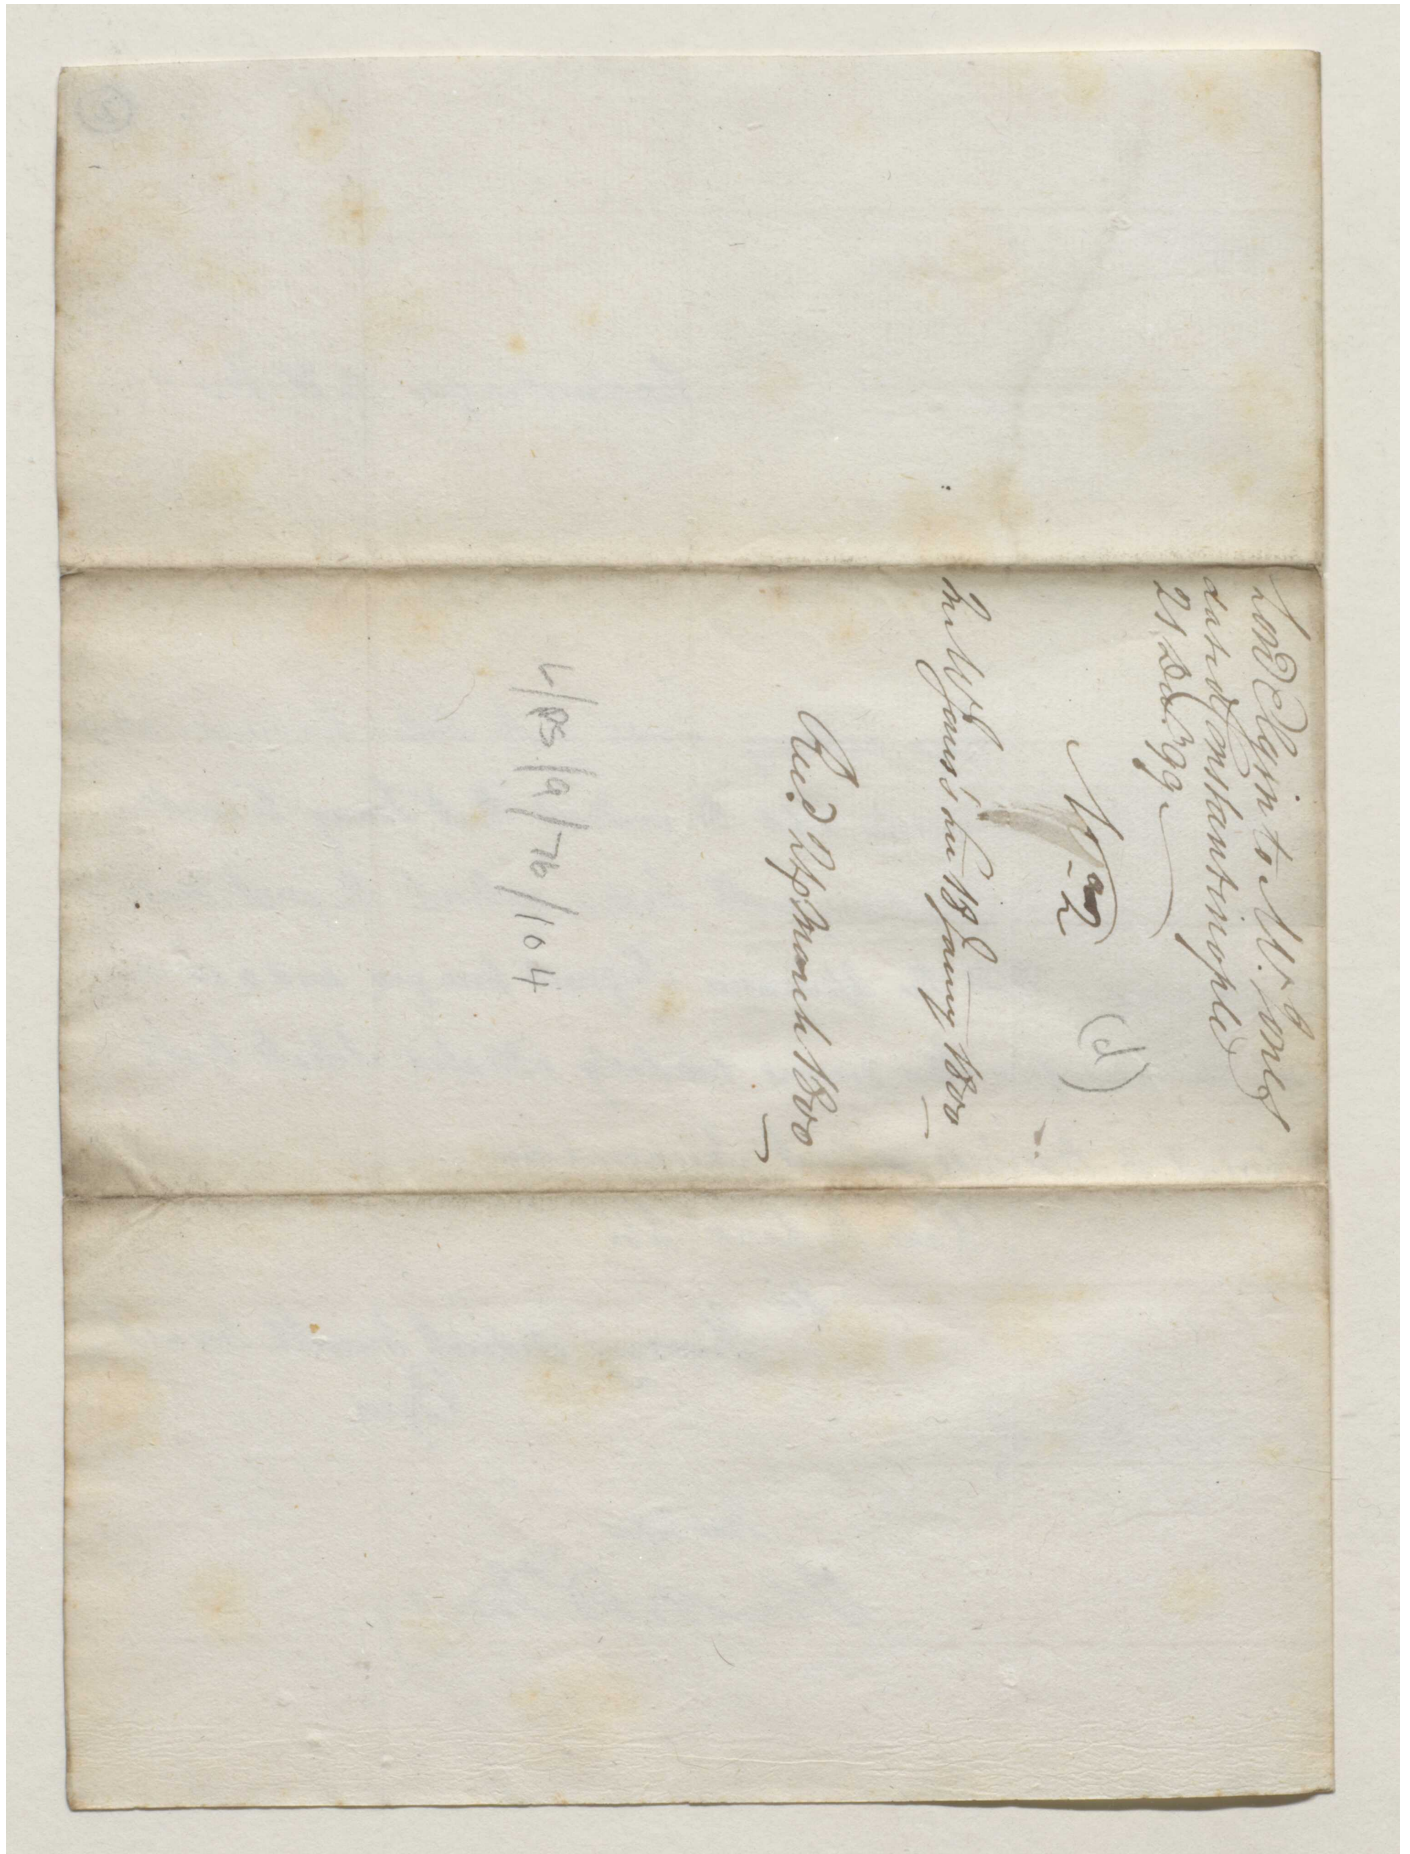 Lord Elgin to Mr Jones
dated Constantinople
21 Decr. 99
No. 2
(d)
In Mr Jones's Lre 18 Jany 1800
Recd. 24 March 1800
L/PS/9/76/104